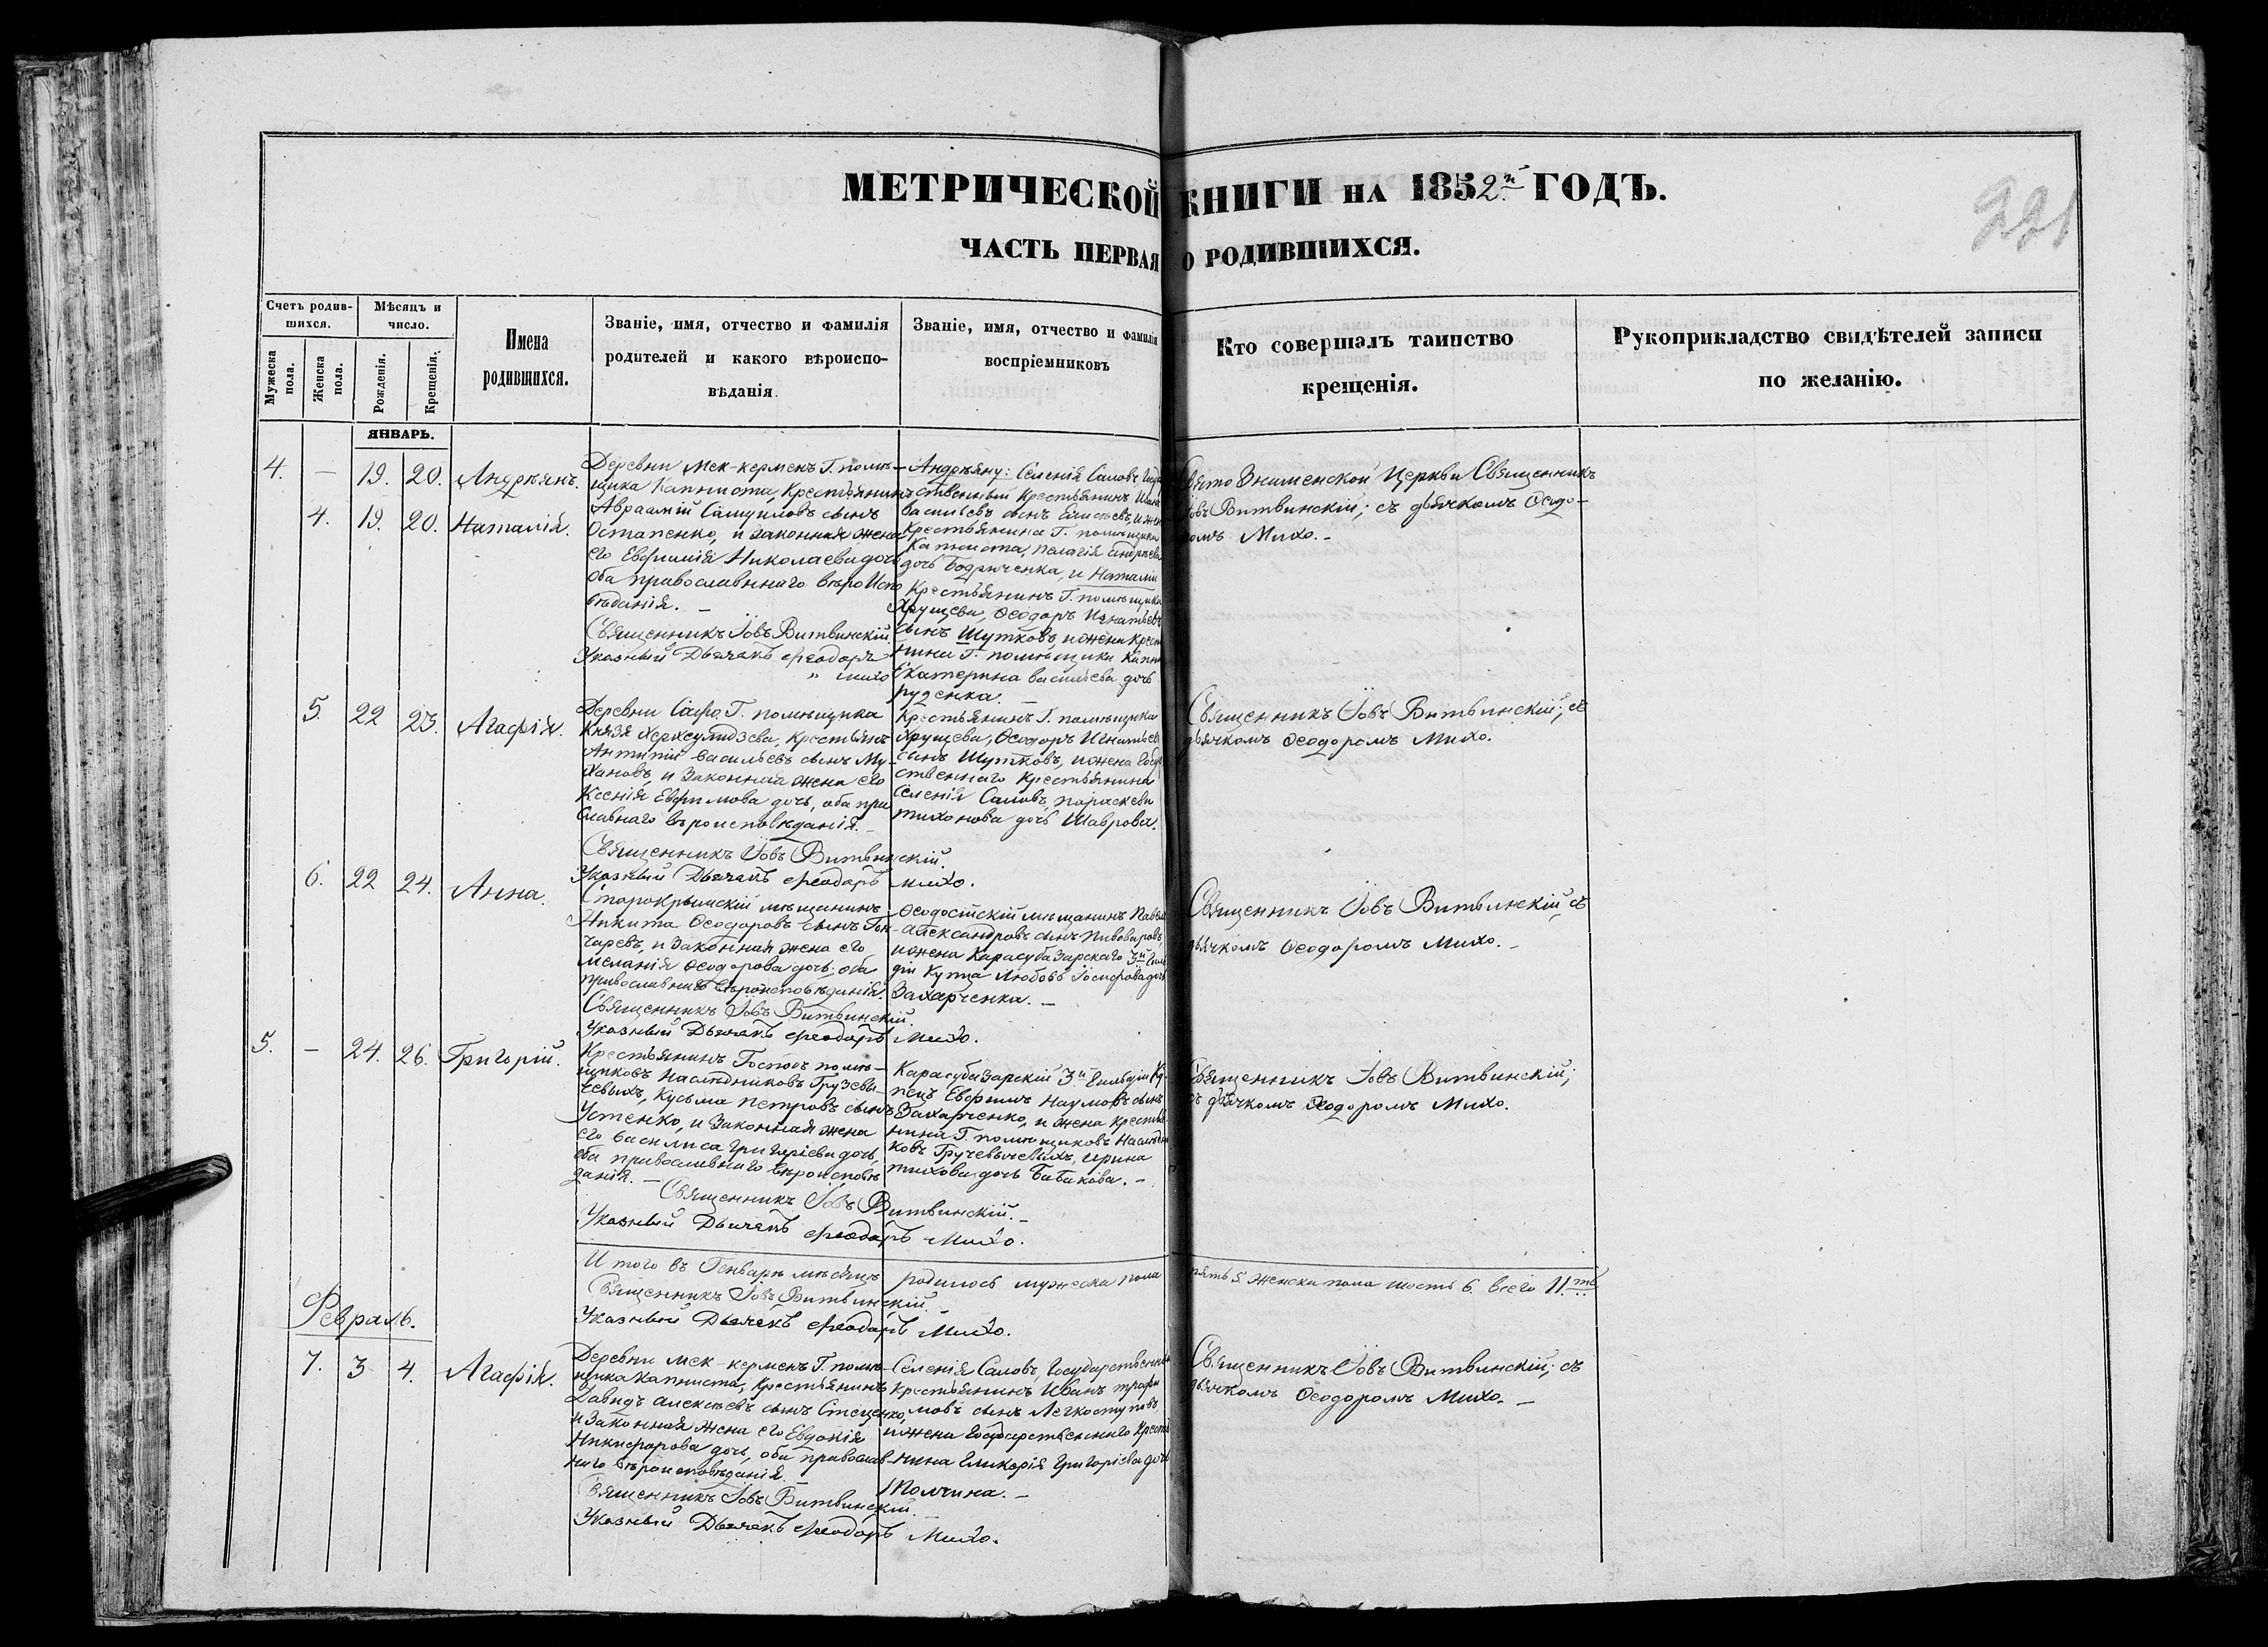 МЕТРИЧЕСКОЙ КНИГИ НА 1852й ГОДЪ.
221
ЧАСТЬ ПЕРВАЯ О РОДИВШИХСЯ.
Счетъ родив-
шихся.
Мѣсяцъ и
число.
Мужеска
пола.
Женска
пола.
Рожденія.
Крещенія.
Имена
родившихся.
Званіе, имя, отчество и фамилія
родителей и какого вѣроиспо-
вѣданія.
Званіе, имя, отчество и фамилія
воспріемниковъ
Кто совершалъ таинство
крещенія.
Рукоприкладство свидѣтелей записи
по желанію.
ЯНВАРЬ.
4. — 19. 20. Андрѣянъ.
4. 19. 20. Наталія.
Деревни Мек-керменъ Г. помѣ-
щика Капниста, Крестьянинъ
Авраамій Самуиловъ сынъ
Остапенко, и законная жена
его Евфимія Николаева дочь
оба православнаго вѣроиспо
вѣданія. —
Священникъ Іовъ Витвинскій
Указный Дьячекъ Феодоръ
" Михо
Андрѣяну: Селенія Саловъ Госуда
ственный Крестьянинъ Иванъ
Васильевъ сынъ Елисѣевъ, и жена
Крестьянина Г. помѣщика
Капниста, Пелагія Андрѣева
дочь Бодриченка, и Наталіи
Крестьянинъ Г. помѣщика
Хрущева, Ѳеодоръ Игнатьевъ
сынъ Шутковъ, и жена Крестья
нина Г. помѣщика Капни
Екатерина Васильева дочь
Руденка. —
Свято Знаменской Церкви Священникъ
Іовъ Витвинскій; съ дьячкомъ Ѳеодо-
ромъ Михо. —
5. 22 23. Агафія.
Деревни Г. помѣщика
Князя Херхеулидзева, Крестьянинъ
Антипій Васильевъ сынъ Му-
хановъ, и законная жена его
Ксенія Ефимова дочь, оба пра
славнаго вѣроисповѣданія. —
Священникъ Іовъ Витвинскій.
Указный Дьячекъ Феодоръ Михо.
Крестьянинъ Г. помѣщика
Хрущева, Ѳеодоръ Игнатьевъ
сынъ Шутковъ, и жена Госуд
ственнаго Крестьянина
Селенія Саловъ, Параскева
Тихонова дочь Шаврова.
Священникъ Іовъ Витвинскій; съ
дьячкомъ Ѳеодоромъ Михо.
6. 22 24. Анна.
Старокрымскій мѣщанинъ
Никита Ѳеодоровъ сынъ Гон-
чаревъ, и законная жена его
Меланія Ѳеодорова дочь, оба
православнаго вѣроисповѣданія.
Священникъ Іовъ Витвинскій.
Указный Дьячекъ Феодоръ Михо.
Ѳеодосійскій мѣщанинъ Павелъ
Александровъ сынъ Пивоваровъ,
и жена Карасубазарскаго 3й Гиль
діи Купца Любовь Іосифова дочь
Захарченка. —
Священникъ Іовъ Витвинскій съ
дьячкомъ Ѳеодоромъ Михо. —
5. — 24. 26. Григорій.
Крестьянинъ Господъ помѣ-
щиковъ Наслѣдниковъ
Кузьма Петровъ сынъ
Устенко, и законная жена
его Василиса Григоріева дочь,
оба православнаго вѣроисповѣ
данія. —
Священникъ Іовъ Витвинскій. —
Указный Дьячекъ Феодоръ Михо.
Карасубазарскій 3й Гильдіи Ку-
пецъ Евфимъ Наумовъ сынъ
Захарченко, и жена Крестья
нина Г. помѣщиковъ Наслѣдни
ковъ Ирина
Тихова дочь Бабакова. —
Священникъ Іовъ Витвинскій;
съ дьячкомъ Ѳеодоромъ Михо.
Итого въ Генварѣ мѣсяцѣ родилось мужеска пола пять 5. женска пола шесть 6. всего 11ть
Священникъ Іовъ Витвинскій. —
Указный Дьячекъ Феодоръ Михо.
Февраль.
7. 3 4. Агафія.
Деревни Мек-керменъ Г. помѣ-
щика Капниста, Крестьянинъ
Давидъ Алексѣевъ сынъ Стеценко,
и законная жена его Евдокія
Никифорова дочь, оба православ-
наго вѣроисповѣданія. —
Священникъ Іовъ Витвинскій.
Указный Дьячекъ Феодоръ Михо.
Селенія Саловъ, Государственный
Крестьянинъ Иванъ Трофи
мовъ сынъ Легкоступовъ,
и жена Государственнаго Крестья
нина Гликерія Григоріева дочь
Толчина. —
Священникъ Іовъ Витвинскій; съ
дьячкомъ Ѳеодоромъ Михо. —